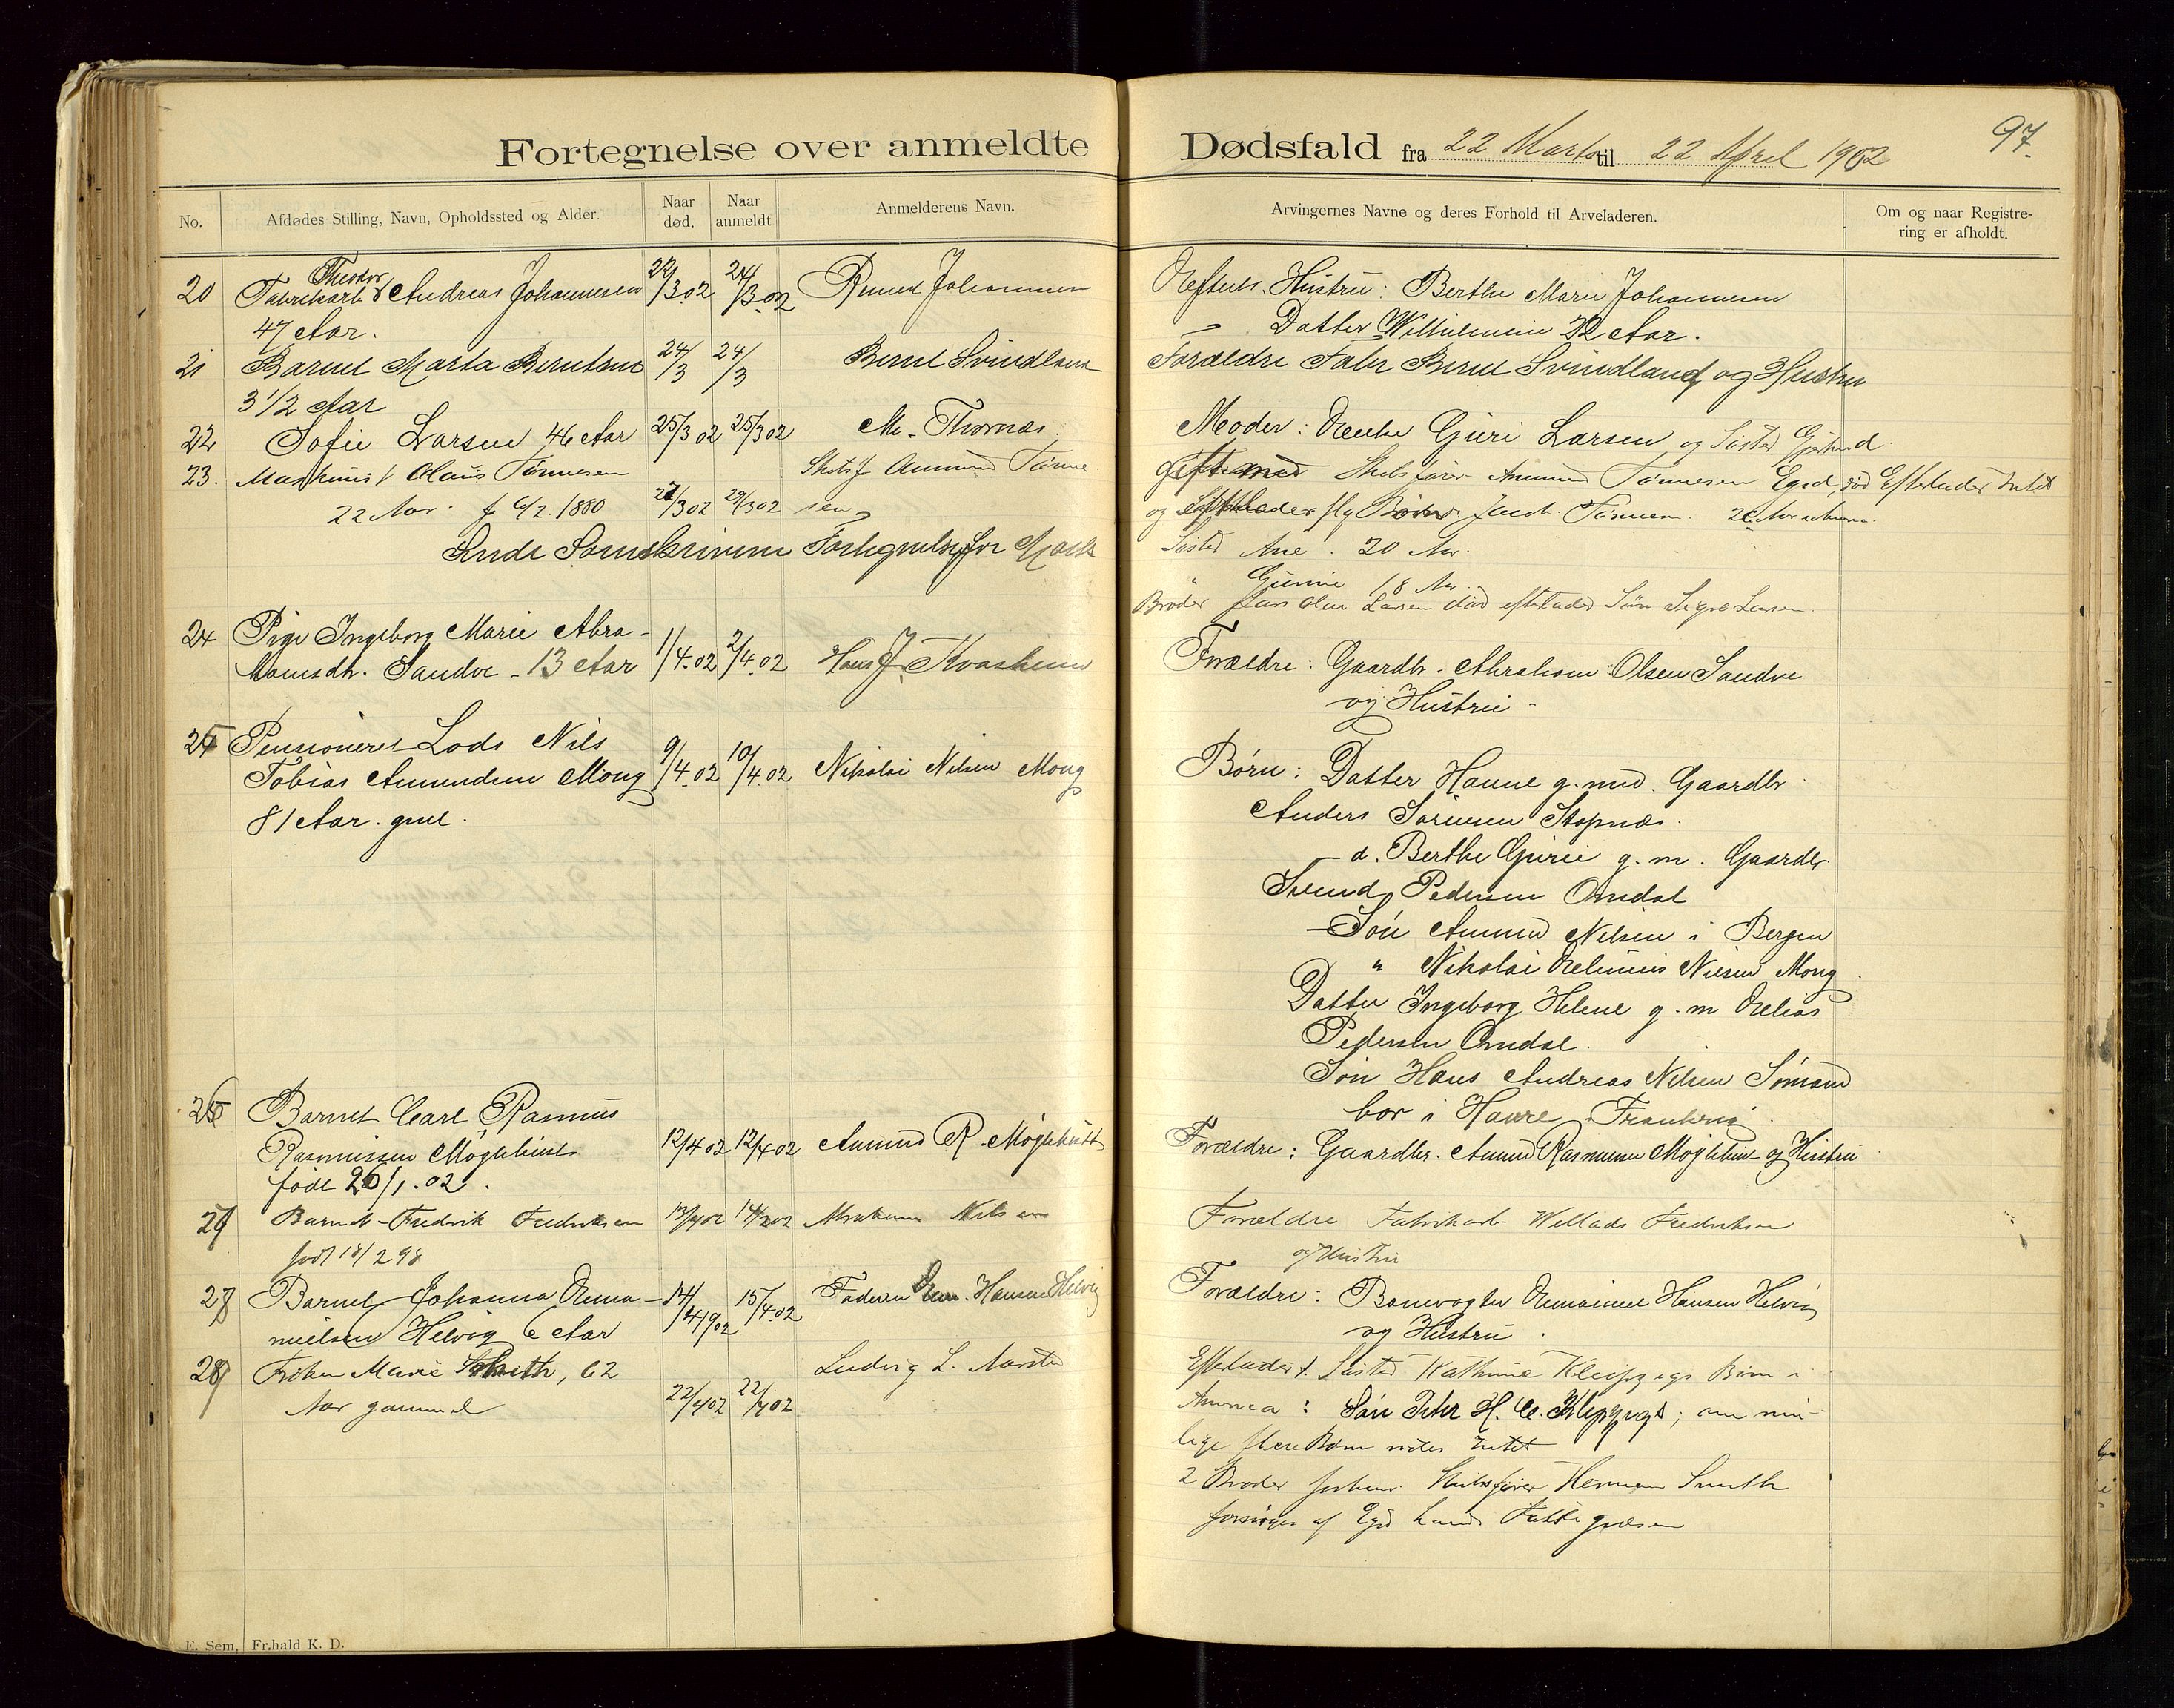 Fortegnelse over anmeldte Dødsfald fra 22 Marts til 22 April 1902
97.
No.
Afdødes Stilling, Navn, Opholdssted og Alder.
Naar død.
Naar anmeldt
Anmelderens Navn.
Arvingernes Navne og deres Forhold til Arveladeren.
Om og naar Registre-
ring er afholdt.
Theodor
20 Fabrikarb Andreas Johannesen 22/3 02 24/3 02 Johannesen
47 Aar.
Efterls. Hustru: Berthe Marie Johannesen
Datter Wilhelmine 22 Aar.
21 Barnet Marta Berntsen 24/3 24/3 Bernt Svindland
3 1/2 Aar
Forældre Fabr Bernt Svindland og Hustru
22 Sofie Larsen 46 Aar 25/3 02 25/3 02 M. Thornæs.
Moder: Enke Guri Larsen og Søster Gjertrud.
23. Maskinist Olaus Tønnesen Skibsf Amund Tønne-
22 Aar. f 6/2. 1880 27/3 02 29/3 02 sen
gift med Skibsfører Amund Tønnesen Egsd, død Efterlader Intet
og efterlader flg Børn, Jacob Tønnesen
Sendt Sorenskriveren Fortegnelse for Marts
Søster Ane. 20 Aar.
" Gunnie 18 Aar.
Broder Lars Olai Larsen død efterlader Søn Sigve Larsen.
24 Pige Ingeborg Marie Abra-
hamsdtr. Sandve - 13 Aar 1/4.02 2/4.02 Hans J. Kvasheim
Forældre: Gaardbr. Abraham Olsen Sandve
og Hustru -
25 Pensioneret Lods Nils
Tobias Amundsen Mong 9/4.02 10/4.02 Nikolai Nilsen Mong
81 Aar. gml.
Børn: Datter Hanne g. med. Gaardbr.
Anders Sørensen Stapnæs.
- d. Berthe Gurie g. m. Gaardbr
Svend Pedersen Omdal
- Søn Amund Nilsen i Bergen
" Nikolai Nilsen Mong.
Datter Ingeborg Helene g. m Elias
Pedersen Omdal.
Søn Hans Andreas Nilsen Sømand
bor i Havre, Frankrig.
26 Barnet Carl Rasmus
Rasmussen Møglebust 12/4 02 12/4 02 Amund R. Møglebust
født 26/1.02.
Forældre: Gaardbr. Amund Rasmussen Møglebust og Hustru
27 Barnet Fredrik Fredriksen 13/4 02 14/4 02 Abraham Nilsen
født 18/2 98
Forældre Fabrikarb. Wellads Fredriksen
og Hustru
28 Barnet Johanna Ema-
nuelsen Helvig 6 Aar 14/4 1902 15/4.02 Faderen Em. Hansen Helvig
Forældre: Banevogter Emanuel Hansen Helvig
og Hustru.
29 Frøken Marie Smith, 62 Ludvig L. Aarstad
Aar gammel 22/4 02 22/4 02
Efterlader 1. Søster Kathrine Børn i
America: Søn Peter H. C.; om mu-
lige flere Børn vides Intet
2 Broder forhenv. Skibsfører Herman Smith
forsørges af Egd Lands Fattigvæsen
E. Sem, Fr.hald K. D.